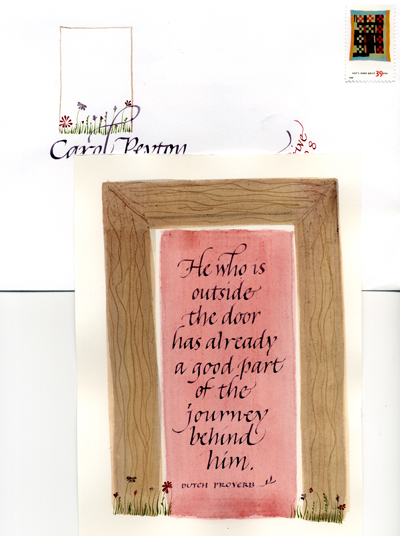 39
Carol Peyton
He who is
outside
the door
has already
a good part
of the
journey
behind
him.
DUTCH PROVERB